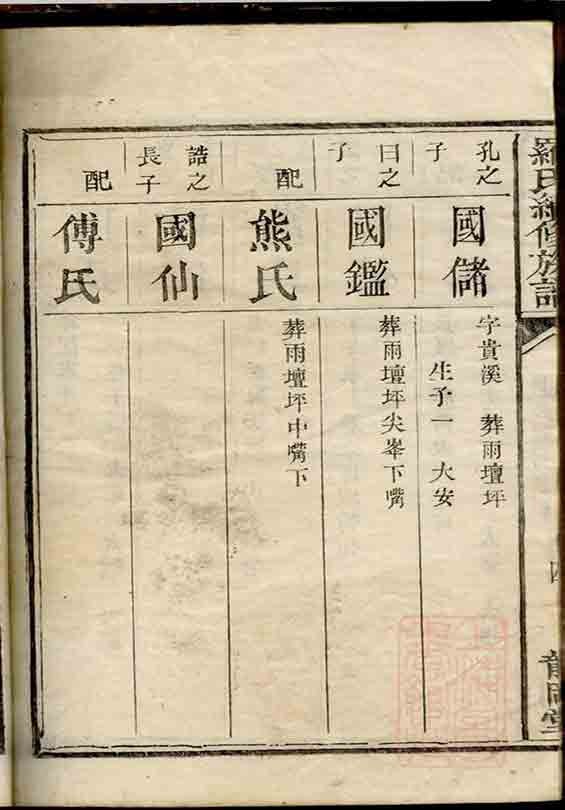 羅氏續修族譜
孔之子
國儲
字貴溪 葬雨壇坪
生子一 大安
曰之子
國鑑
葬雨壇坪尖峯下嘴
配
熊氏
葬雨壇坪中嘴下
誥之長子
國仙
配
傅氏